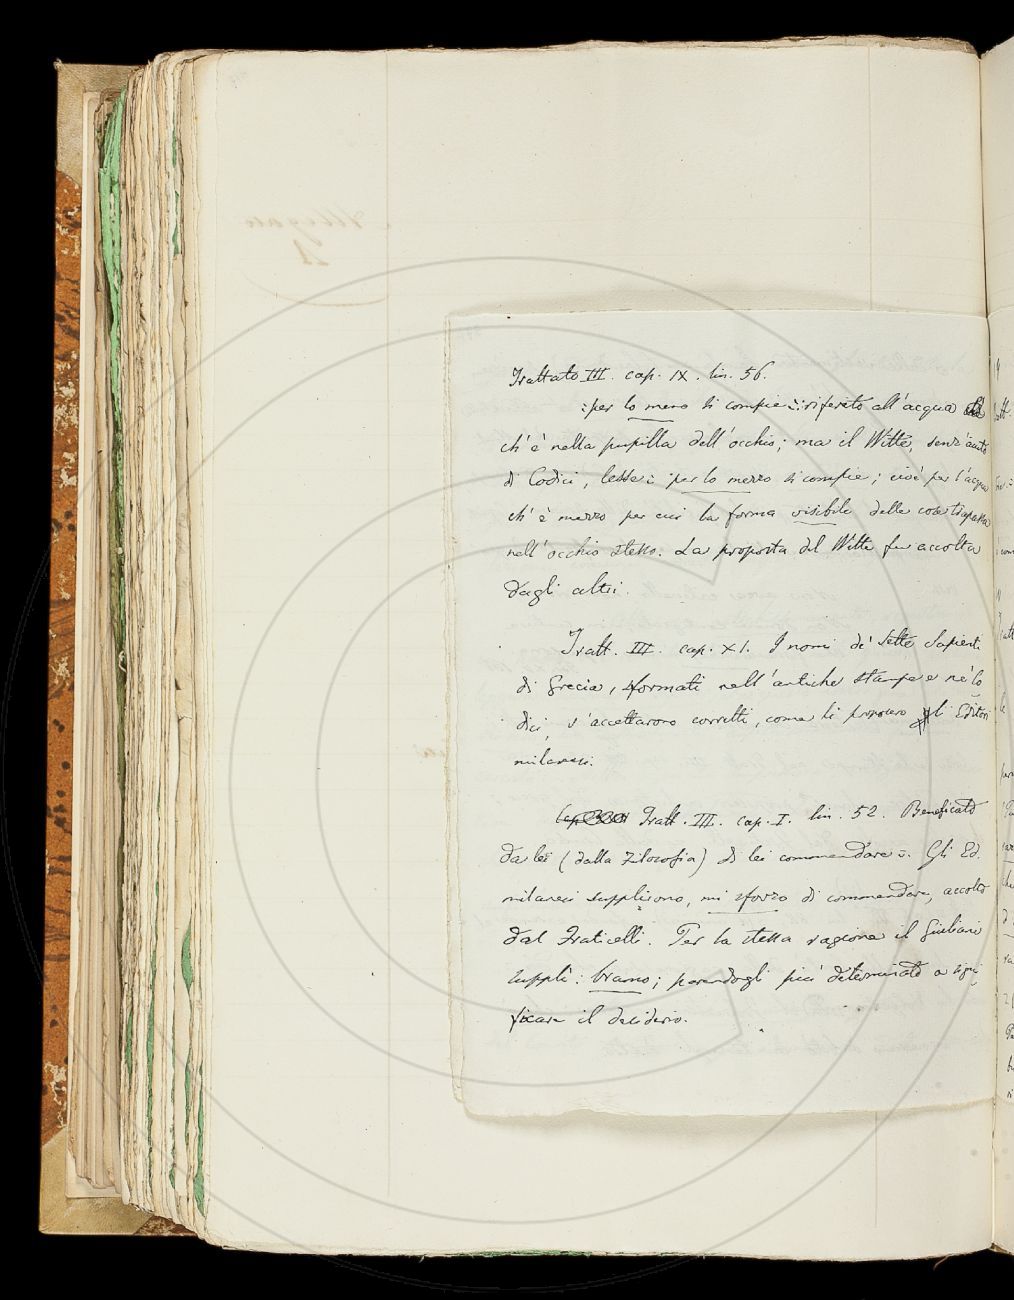 Trattato III. cap. IX. lin. 56.
: per lo meno si compie :: riferito all'acqua
ch'è nella pupilla dell'occhio; ma il Witte, senz'aiuto
di Codici, lesse: : per lo mezzo si compie; cioè per l'acqua
ch'è mezzo per cui la forma visibile delle cose trapassa
nell'occhio stesso. La proposta del Witte fu accolta
dagli altri.
Tratt. III. cap. XI. I nomi de' Sette Sapienti
di Grecia, sformati nell'antiche stampe e ne' Co-
dici, s'accettarono corretti, come li proposero gli Editori
milanesi.
Tratt. III. cap. I. lin. 52. Beneficato
da lei (dalla Filosofia) di lei commendare :. Gli Ed.
milanesi supplirono, mi sforzo di commendare, accolto
dal Fraticelli. Per la stessa ragione il Giuliani
supplì: bramo; parendogli più determinato a signi-
ficare il desiderio.
Allegato